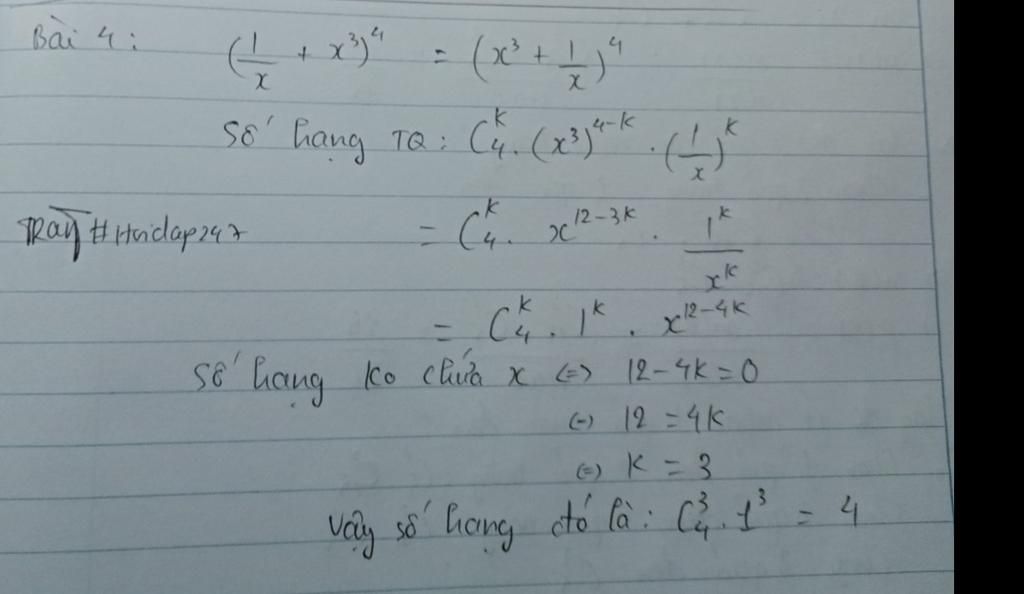 Bài 4: (1/x + x³)⁴ = (x³ + 1/x)⁴
Số hạng TQ: C₄ᵏ . (x³)⁴⁻ᵏ . (1/x)ᵏ
#Hoidap247 = C₄ᵏ . x¹²⁻³ᵏ . 1ᵏ/xᵏ
= C₄ᵏ . 1ᵏ . x¹²⁻⁴ᵏ
Số hạng ko chứa x (=) 12-4k=0
(=) 12 = 4k
(=) k = 3
Vậy số hạng đó là: C₄³ . 1³ = 4